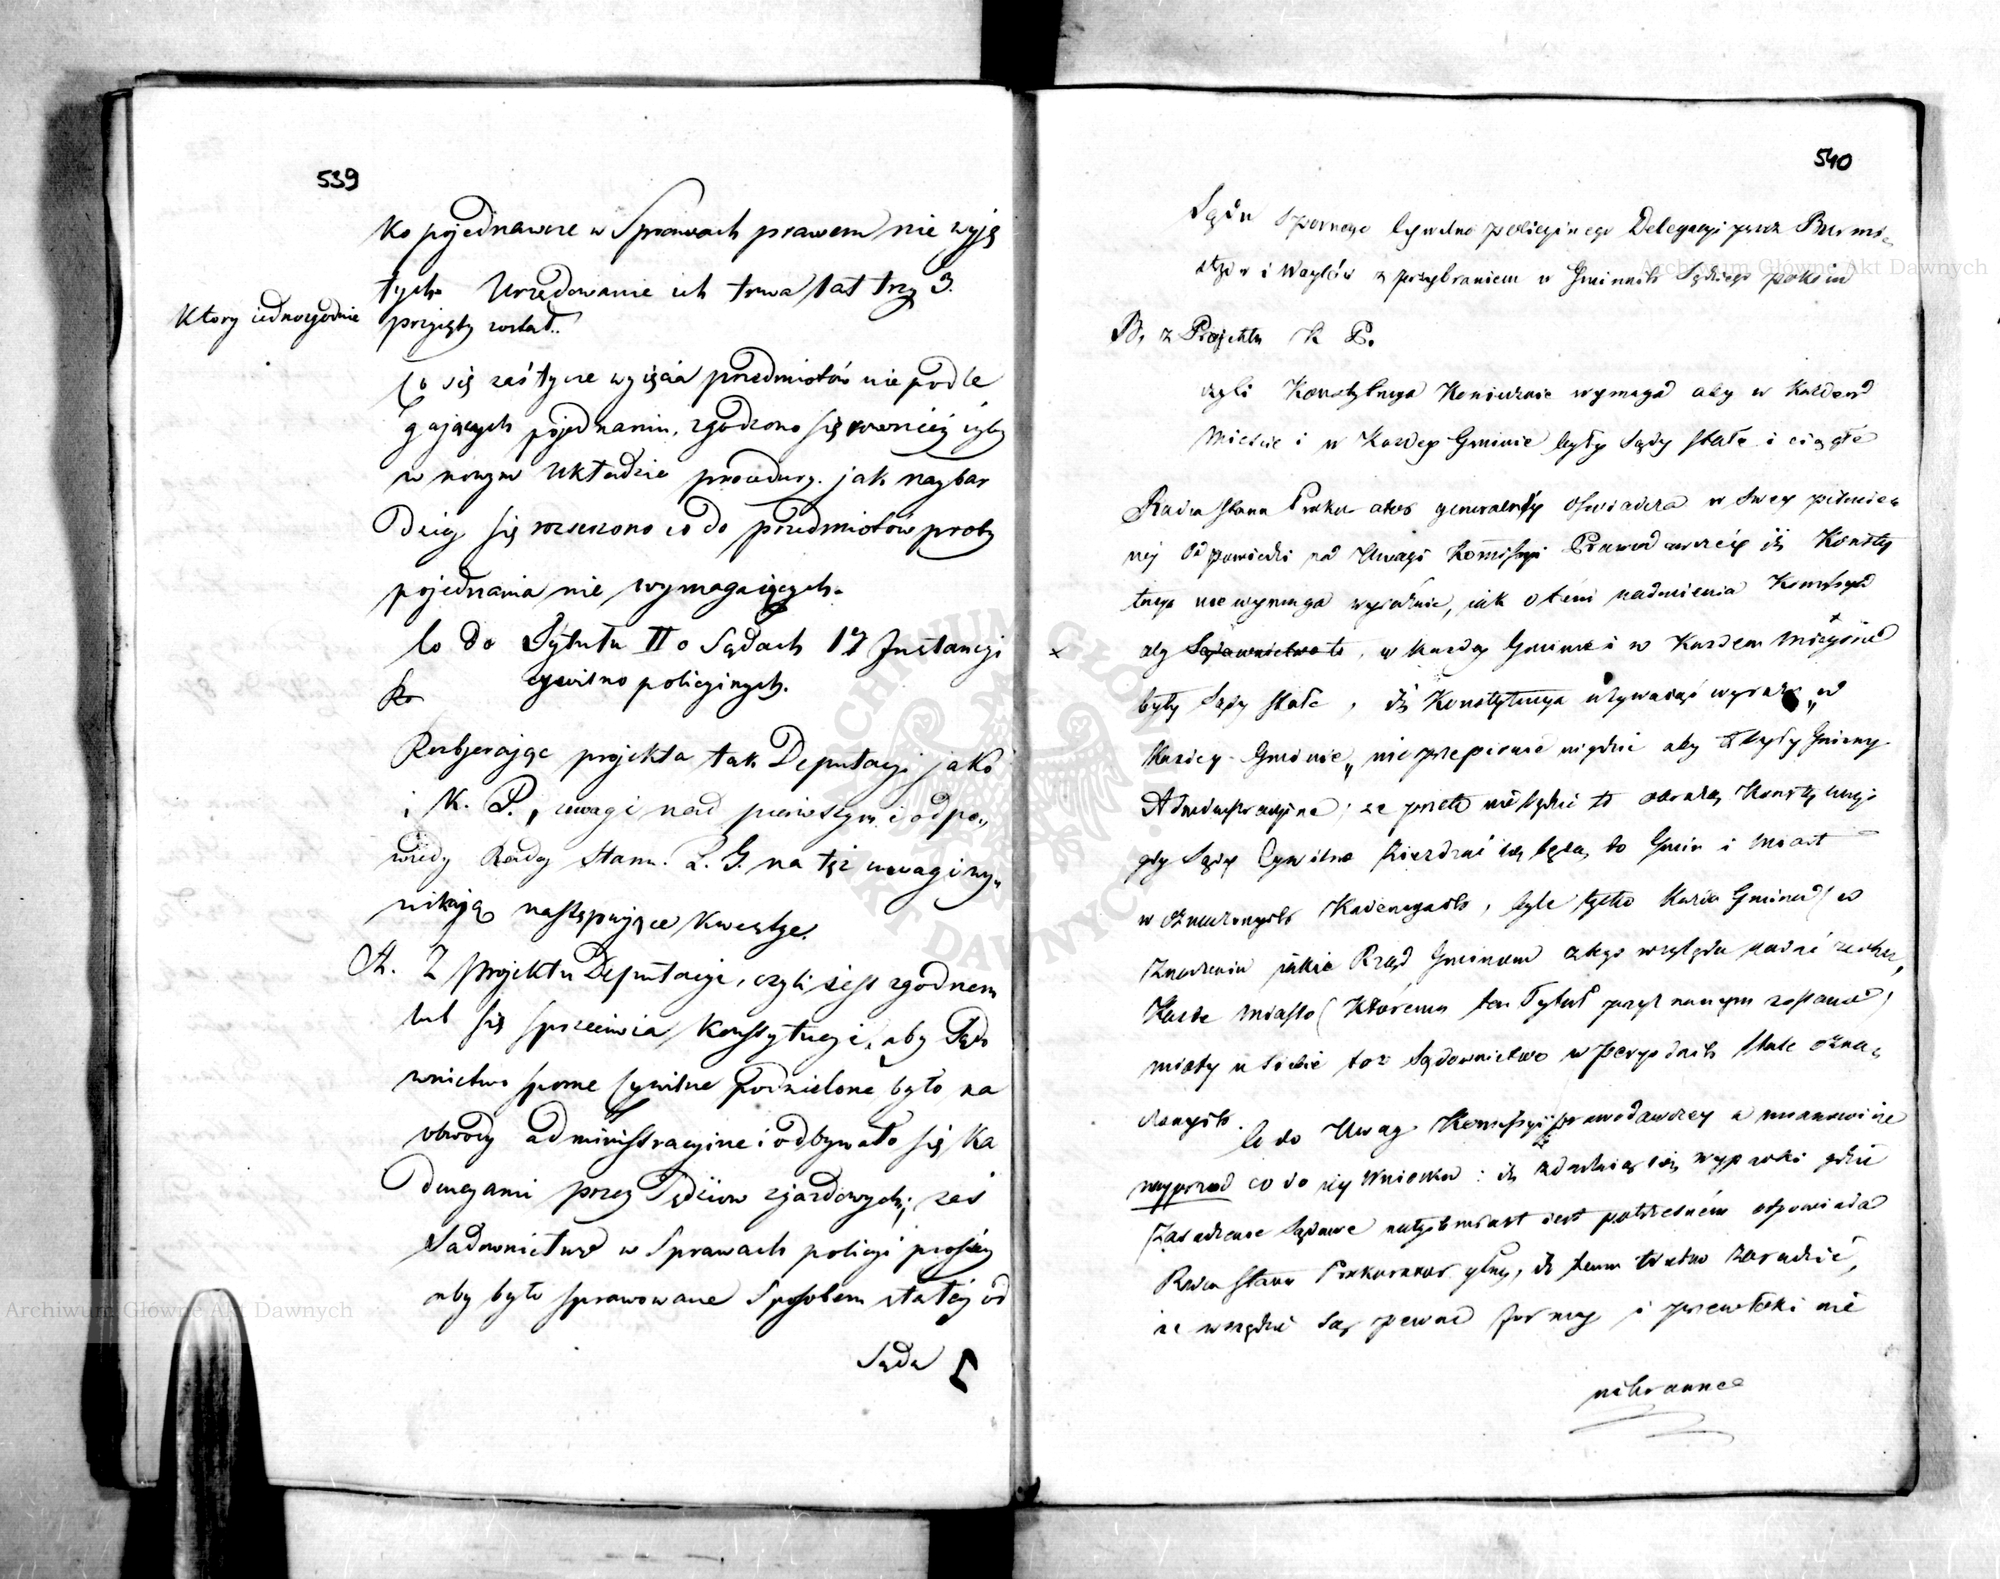 539
ko pojednawcze w Sprawach prawem nie wyję
tych. Urzędowanie ich trwa lat trzy 3.
Który iednozgodnie
przyięty został.
Co się zaś tycze wyięcia przedmiotów nie podle
gających pojednaniu, zgodzono się również iżby
w nowym układzie procedury jak naybar
dziey się rozszerzono co do przedmiotów proby
pojednania nie wymagaiących.
Co do Tytułu II o Sądach 1ey Instancyi
cywilno policyinych.
Rozbierając projekta tak Deputacyi jako
i K. P., uwagi nad pierwszym i odpo„
wiedzi Radcy Stanu P. G. na też uwagi wy„
nikają następujące kwestye.
A. Z projektu Deputacyi, czyli iest zgodnem
lub się sprzeciwia Konstytucyi, aby Sądo
wnictwo sporne cywilne podzielone było na
obwody administracyine i odbywało się ka
dencyami przez Sędziow zjazdowych; zaś
Sadownictwo w Sprawach policyi prostey
aby było sprawowane Sposobem stałéj od
Sądu
540
Sądu Spornego Cywilno policyinego Delegacyi przez Burmi„
strzów i Woytów z przybraniem w Gminach Sędziego pokoiu
B. z Projektu K P.
czyli Konstytucya koniecznie wymaga aby w każdem
Mieście i w każdey Gminie były Sądy stałe i ciągłe
Radca Stanu Prokurator generalny oświadcza w swey piśmien
néj odpowiedzi na Uwagi Kommissyi Prawodawczéy iż Konsty
tucya nie wymaga wyraźnie, jak o tém nadmienia Kommissya
aby Sądownictwo to, w każdey Gminie i w każdem Mieyscu
były Sądy stałe, iż Konstytucya używaiąc wyrazu „w
każdey Gminie„ nie przepisuie nigdzie aby to były Gminy
Administracyine; że przeto nie będzie to obrazą Konstytucyi
gdy Sądy Cywilne zieżdżać się będą do Gmin i Miast
w oznaczonych Kadencyach, byle tylko każda Gmina (w
znaczeniu jakie Rząd Gminom z tego względu nadać zechce,
każde Miasto (któremu ten Tytuł przyznanym zostanie)
miały u siebie toż Sądownictwo w peryodach stale ozna„
czonych.
Co do Uwag Kommissyi prawodawczey a mianowicie
nayprzod co do iey Wniosku: iż zdarzaią się wypadki gdzie
zaradzenie Sądowe natychmiast iest potrzebném odpowiada
Radca Stanu Prokurator glny, iż temu trudno zaradzić,
że wszędzie są pewne formy i przewłoki nie